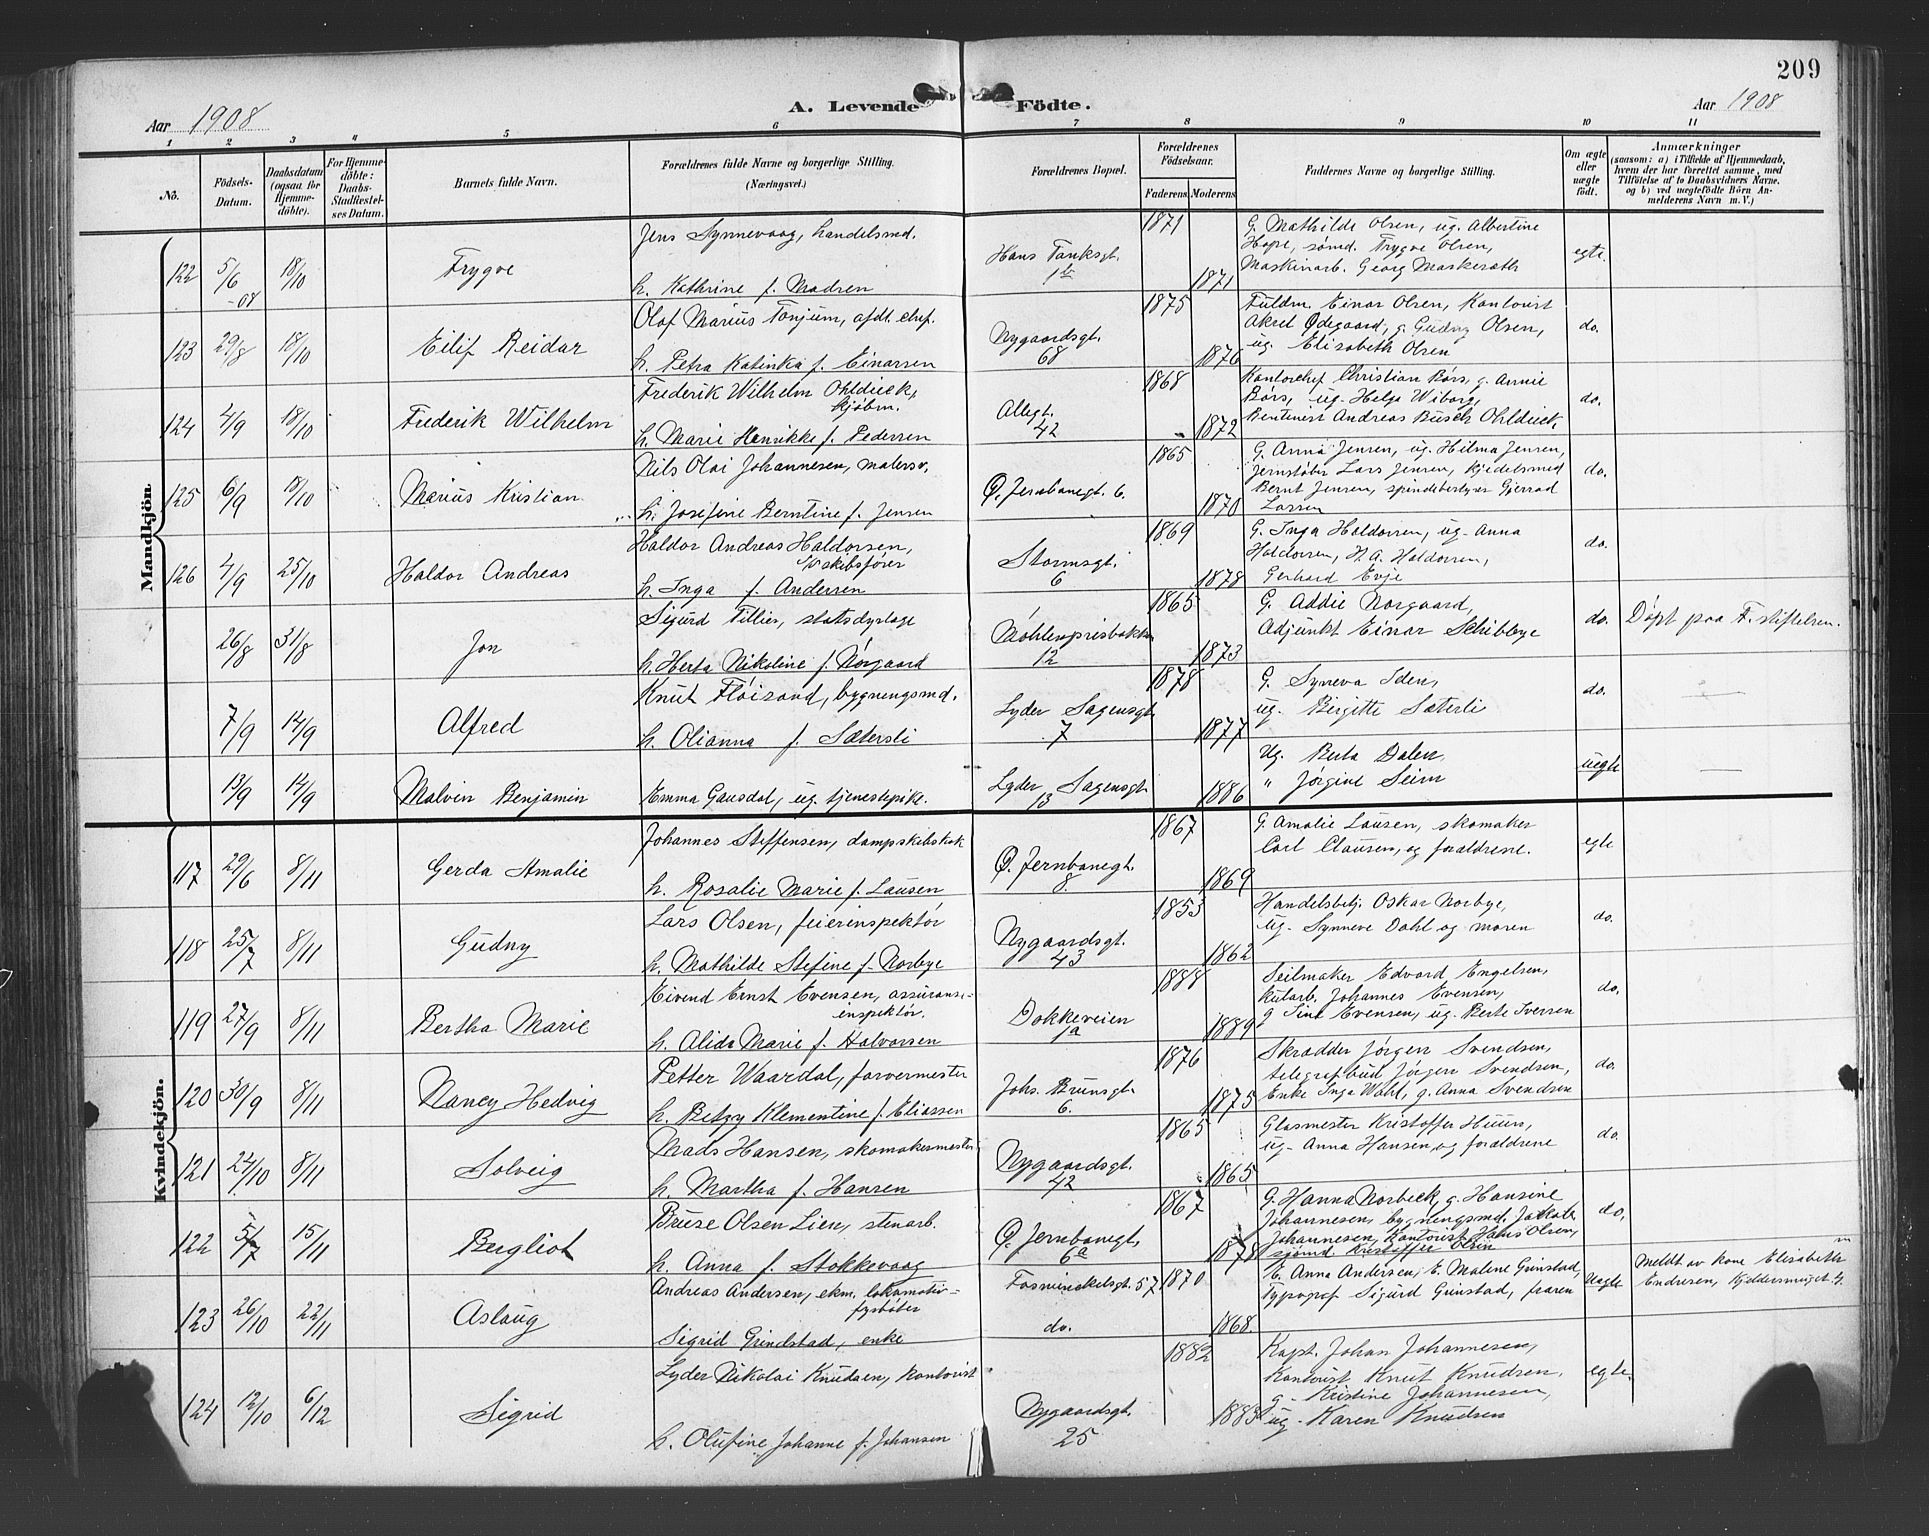 209
Aar 1908
A. Levende Födte.
Aar 1908
1 2 3 4 5 6 7 8 9 10 11
No.
Födsels-Datum.
Daabsdatum (ogsaa for Hjemme-döbte).
For Hjemme-döbte: Daabs-Stadfæstel-ses Datum.
Barnets fulde Navn.
Forældrenes fulde Navne og borgerlige Stilling. (Næringsvei.)
Forældrenes Bopæl.
Forældrenes Födselsaar.
Faderens Moderens
Faddernes Navne og borgerlige Stilling.
Om ægte eller uægte födt.
Anmærkninger
(saasom: a) i Tilfælde af Hjemmedaab, hvem der har forrettet samme, med Tilföielse af to Daabsvidners Navne, og b) ved uægtefödte Börn An-melderens Navn m. V.)
Mandkjön
122 5/6 -08 18/10 Trygve
Jens Synnevaag, handelsmd.
h. Kathrine f. Madsen
Hans Tanksgt.
1871 1871
G. Mathilde Olsen, ug. Albertine
Hope, sømd. Trygve Olsen,
Maskinarb. Georg Maskeråth
egte.
123 29/8 18/10 Eilif Reidar
Olaf Marius Tonjum, afdt. chef.
h. Petra Katinka f. Einarsen
Nygaardsgt. 68
1875 1876
Fuldm. Einar Olsen, Kontorist
Aksel Ødegaard, g. Gudny Olsen,
ug. Elisabeth Olsen
do.
124 4/9 18/10 Frederik Wilhelm
Frederik Wilhelm Ohldieck,
kjøbm.
h. Marie Henrikke f. Pedersen
Allegt. 42
1868 1872
Kontorchef Christian Børs, g. Annie
Børs, ug. Helga Wiborg,
Rentenist Andreas Busch Ohldieck.
do.
125 6/9 18/10 Marius Kristian
Nils Olai Johannesen, malersv.
h. Josefine Berntine f. Jensen
Ø. Jernbanegt. 6.
1865 1870
G. Anna Jensen, ug. Hilma Jensen,
Jernstøber Lars Jensen, kjedelsmed
Bernt Jensen, spindebestyrer Gjerrad
Larsen
do.
126 4/9 25/10 Haldor Andreas
Haldor Andreas Haldorsen,
skibsfører
h. Inga f. Andersen
Stormsgt. 6
1869 1878
G. Inga Haldorsen, ug. Anna
Haldorsen, H. A. Haldorsen,
Gerhard Evje
do.
26/8 31/8 Jon
Sigurd Tillier, statsdyrlæge
h. Herta Nikoline f. Nørgaard
Møhlenprisbakken 12
1865 1873
G. Addie Nørgaard,
Adjunkt Einar Schibbye
do.
Døpt paa F. stiftelsen.
7/9 14/9 Alfred
Knut Fløisand, bygningsmd.
h. Olianna f. Sætersli
Lyder Sagensgt. 7
1878 1877
G. Synneva Iden,
ug. Birgitte Sæterli
do. —
13/9 14/9 Malvin Benjamin
Emma Gausdal, ug. tjenestepike.
Lyder Sagensgt. 13
1886
Ug. Berta Dalen,
" Jørgine Seim
uegte —
Kvindekjön.
117 29/6 8/11 Gerda Amalie
Johannes Steffensen, dampskibskok
h. Rosalie Marie f. Lausen
Ø. Jernbanegt. 8.
1867 1869
G. Amalie Lausen, skomaker
Carl Clausen, og forældrene.
egte
118 25/7 8/11 Gudny
Lars Olsen, feierinspektør
h. Mathilde Stefine f. Norbye
Nygaardsgt. 43
1853 1862
Handelsbetj. Oskar Norbye,
ug. Synneve Dahl og moren
do.
119 27/9 8/11 Bertha Marie
Eivend Ernst Evensen, assuranse-
inspektør.
h. Alida Marie f. Halvorsen
Dokkeveien 1a
1888 1889
Seilmaker Edvard Engelsen,
kularb. Johannes Evensen,
g Sina Evensen, ug. Berte Iversen
do.
120 30/9 8/11 Nancy Hedvig
Petter Waardal, farvermester
h. Betzy Klementine f. Eliassen
Johs. Brunsgt. 6.
1876 1875
Skrædder Jørgen Svendsen,
telegrafbud Jørgen Svendsen,
Enke Inga Wahl, g. Anna Svendsen
do.
121 24/10 8/11 Solveig
Mads Hansen, skomakermester
h. Martha f. Hansen
Nygaardsgt. 42
1865 1865
Glasmester Kristoffer Huus,
ug. Anna Hansen, og forældrene
do.
122 5/7 15/11 Bergliot
Bruse Olsen Lien, stenarb.
h. Anna f. Stokkevaag
Ø. Jernbanegt. 6a
1867 1878
G. Hanna Norbeck, g. Hansine
Johannesen, bygningsmd. Jakob
Johannesen, Kontorist Hans Olsen,
sjømd Kristoffer Olsen
do.
123 26/10 22/11 Aslaug
Andreas Andersen, ekm. lokomotiv-
fyrbøter
Sigrid Grindstad, enke
Fosswinckelsgt. 57
do.
1870 1868.
E. Anna Andersen, E. Malene Grinstad,
Typograf Sigurd Grinstad, faren
Uegte
Meldt av kone Elisabeth
Endresen, Kjeldersmuget 4.
124 12/10 6/12 Sigrid
Lyder Nikolai Knudsen, kontorist
h. Olufine Johanne f. Johansen
Nygaardsgt. 25
1882 1883
Kapt. Johan Johannesen,
Kontorist Knut Knudsen,
g. Kristine Johannesen,
ug. Karen Knudsen
egte.